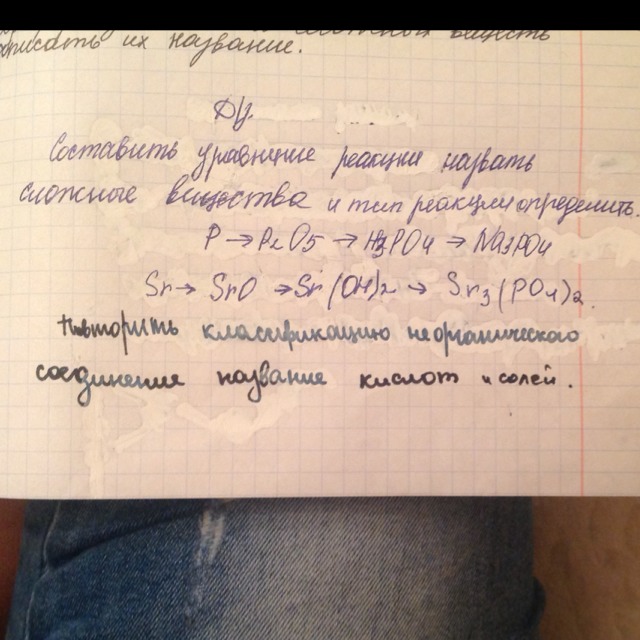 их название.
Д/з.
Составить уравнение реакции назвать
сложные вещества и тип реакции определить.
P → P2O5 → H3PO4 → Na3PO4
Sr → SrO → Sr(OH)2 → Sr3(PO4)2.
Повторить классификацию неорганического
соединение название кислот и солей.